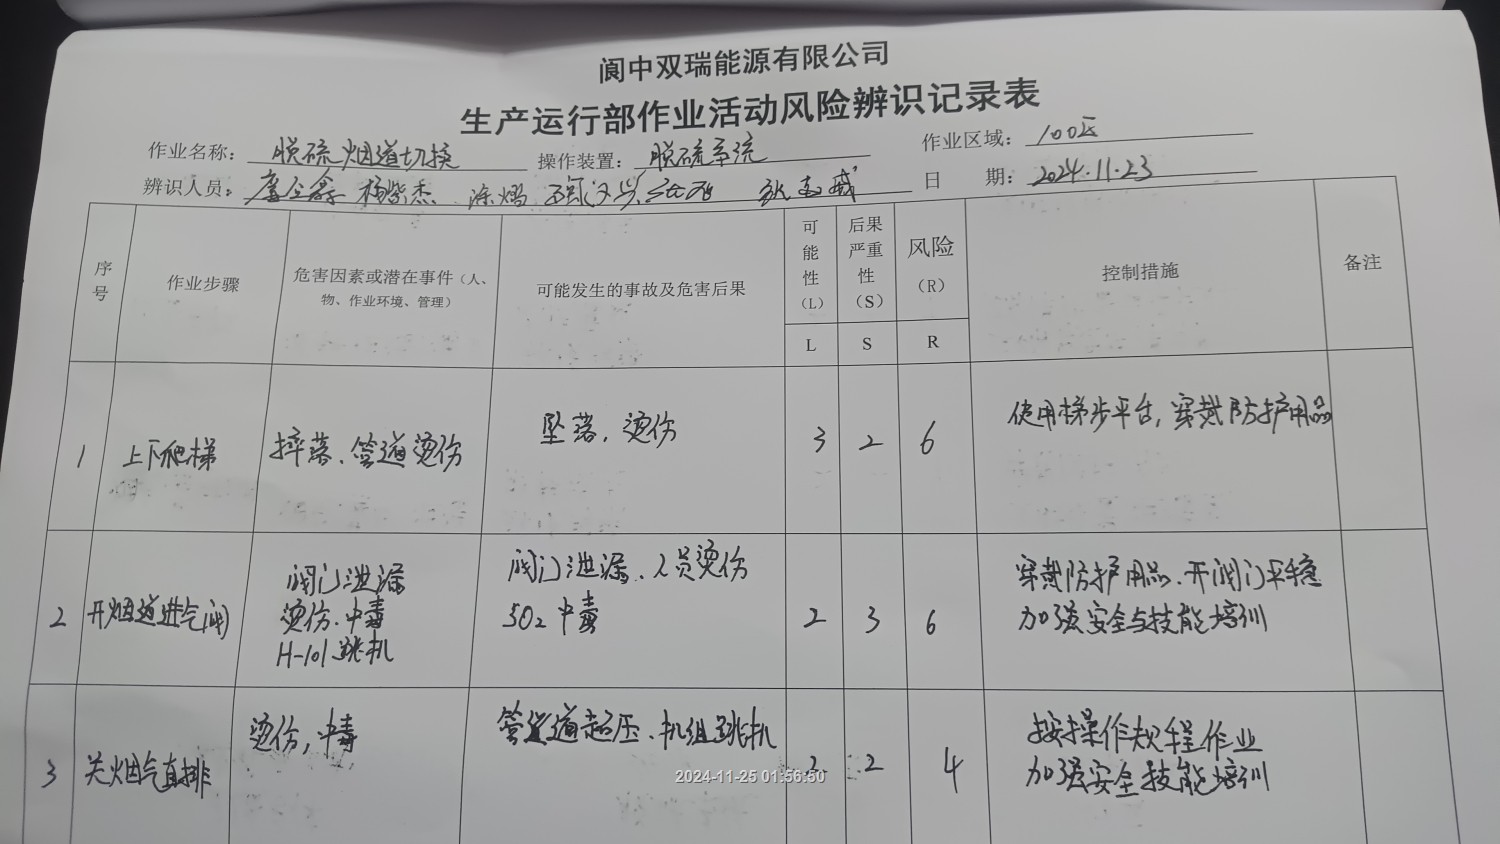 阆中双瑞能源有限公司
生产运行部作业活动风险辨识记录表
作业名称： 脱硫烟道切换 操作装置： 脱硫系统 作业区域： 100区
辨识人员： 杨紫杰 涂熠 日 期： 2024.11.23
序号 作业步骤 危害因素或潜在事件（人、物、作业环境、管理） 可能发生的事故及危害后果 可能性（L） 后果严重性（S） 风险（R） 控制措施 备注
L S R
1 上下爬梯 摔落、管道烫伤 坠落，烫伤 3 2 6 使用梯步平台，穿戴防护用品
2 开烟道进气阀 阀门泄漏 烫伤、中毒 H-101跳机 阀门泄漏、人员烫伤 SO2中毒 2 3 6 穿戴防护用品、开阀门平稳 加强安全与技能培训
3 关烟气直排 烫伤，中毒 管道超压、机组跳机 2 2 4 按操作规程作业 加强安全技能培训
2024-11-25 01:56:50